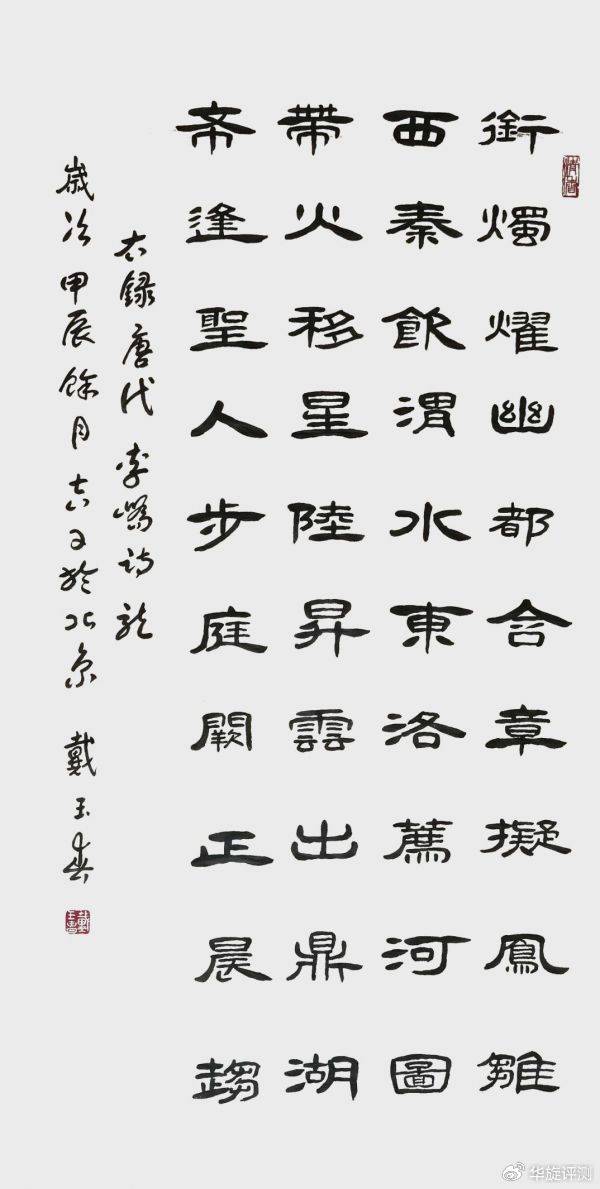 銜燭耀幽都含章擬鳳雛
西秦飲渭水東洛薦河圖
帶火移星陸昇雲出鼎湖
希逢聖人步庭闕正晨趨
右録唐代李嶠詩龍
歲次甲辰餘月吉日於北京 戴玉春
华旋评测